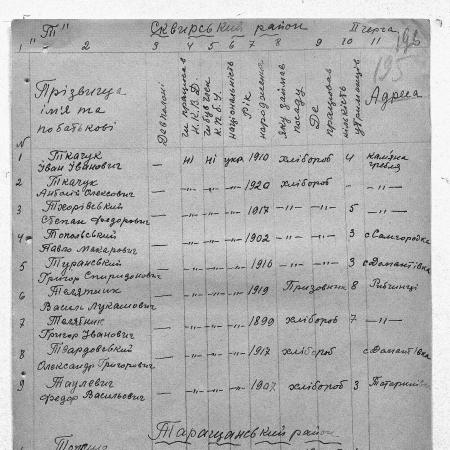 "Т" Сквирський район ІІ черга
1 2 3 4 5 6 7 8 9 10 11
195
№ Прізвища
ім'я та
побатькові
Де в полоні
чи працював Н.К.В.Д.
чи був член К.П.б.У.
національність
Рік народження
яку займав посаду
Де працював
кількість утриманців
Адреса
1 Ткачук
Іван Іванович — ні ні укр. 1910 хлібороб 4 Кам'яна гребля
2 Ткачук
Антоній Олексович — -"- -"- -"- 1920 хлібороб - -"-
3 Тхорівський
Степан Федорович — -"- -"- -"- 1917 -"- -"- 5 -"-
4 Топольський
Павло Макарович — -"- -"- -"- 1902 -"- 3 с Самгородка
5 Туранський
Григор Спиридонович — -"- -"- -"- 1916 -"- 3 с Домантівка
6 Телятник
Василь Лукашович — -"- -"- -"- 1919 Призовник 8
7 Телятник
Григор Іванович — -"- -"- -"- 1899 хлібороб 7 -"-
8 Твардовський
Олександр Григорович — -"- -"- -"- 1917 хлібороб с Домантівка
9 Таулевич
Федор Васильович — -"- -"- -"- 1907 хлібороб 3
Таращанський район